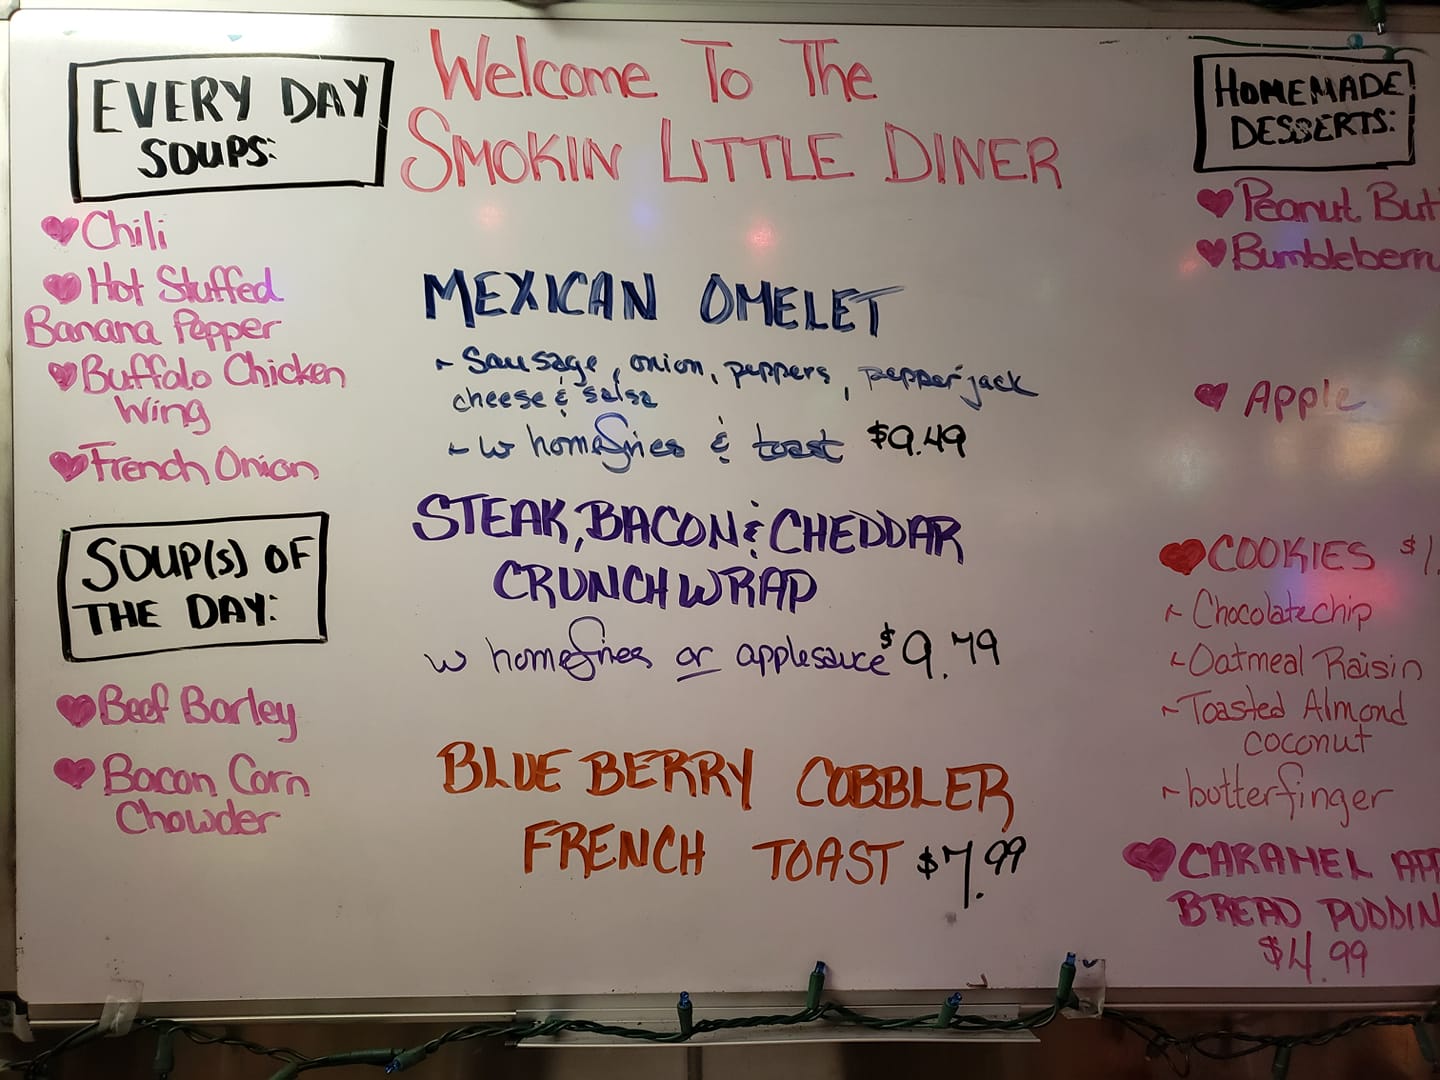 EVERY DAY
SOUPS:
Chili
Hot Stuffed
Banana Pepper
Buffalo Chicken
Wing
French Onion
SOUP(S) OF
THE DAY:
Beef Barley
Bacon Corn
Chowder
Welcome To The
SMOKIN LITTLE DINER
MEXICAN OMELET
- Sausage, onion, peppers, pepperjack
cheese & salsa
- w homefries & toast $9.49
STEAK, BACON & CHEDDAR
CRUNCHWRAP
w homefries or applesauce $9.79
BLUEBERRY COBBLER
FRENCH TOAST $7.99
HOMEMADE
DESSERTS:
Peanut But
Bumbleberry
Apple
COOKIES $1.
- Chocolate chip
- Oatmeal Raisin
- Toasted Almond
coconut
- butterfinger
CARAMEL APP
BREAD PUDDIN
$4.99